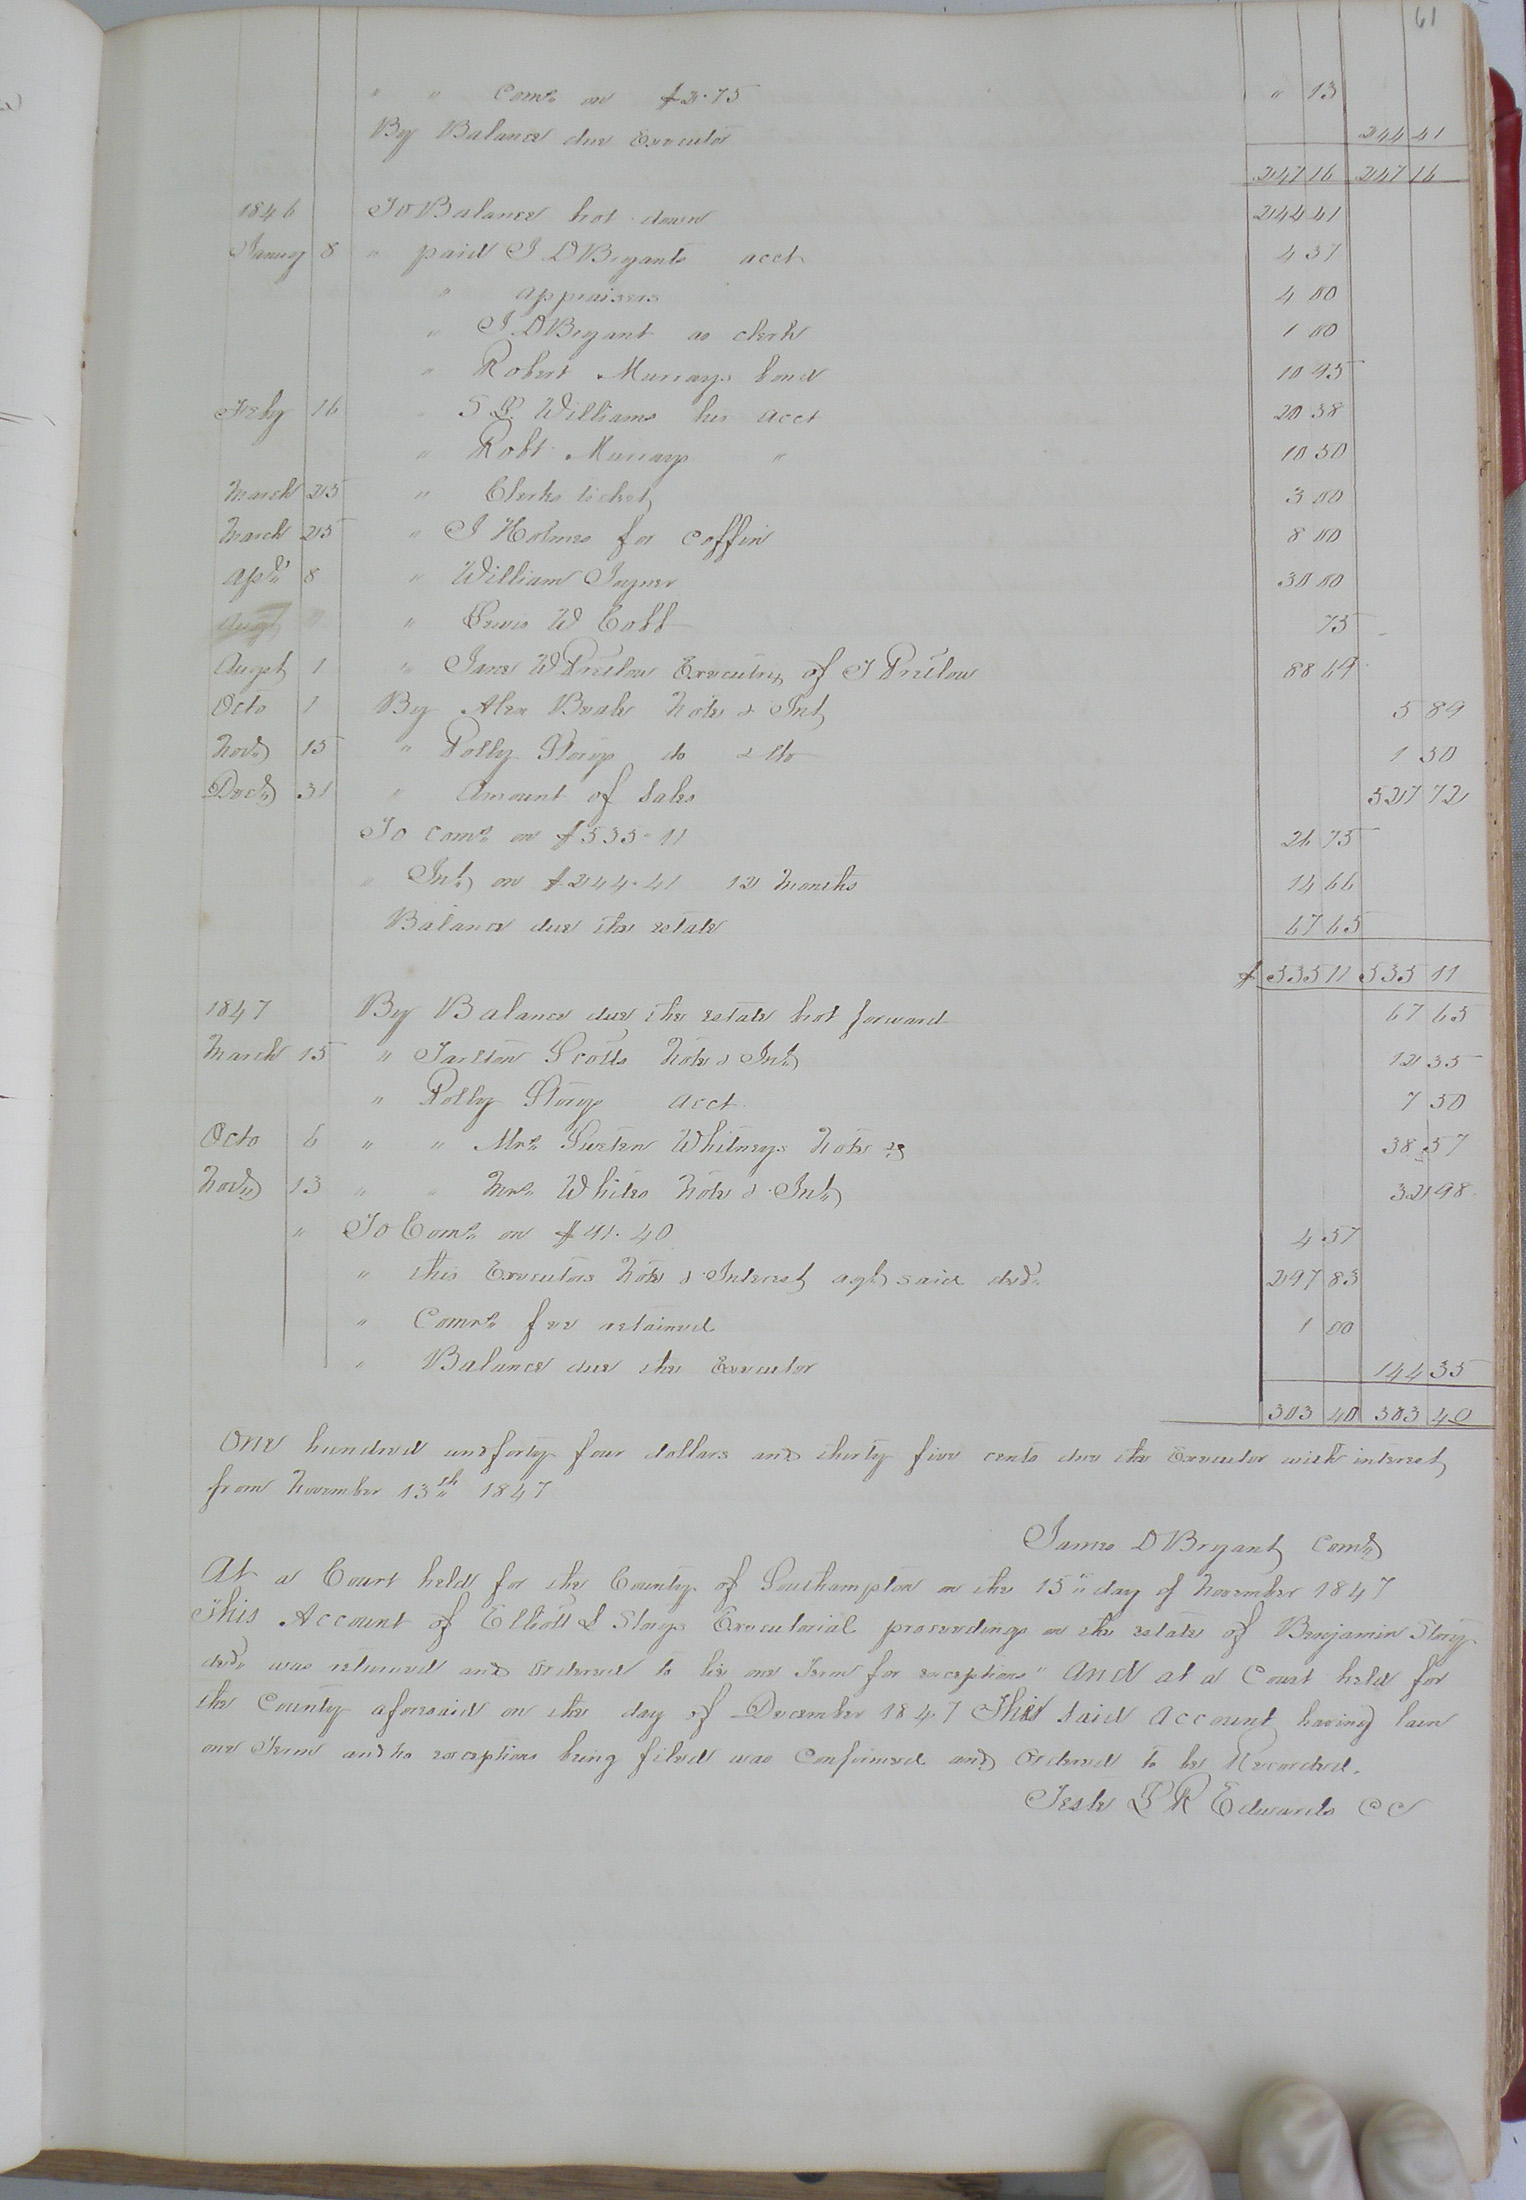 61
" " Comn on $2.75 " 13
By Balance due Executor 244 41
247 16 247 16
1846 To Balance bot down 244 41
Januy 8 " paid J D Bryants acct 4 37
" appraisers 4 00
" J D Bryant as clerk 1 00
" Robert Murrays bond 10 95
Feby 16 " S B Williams his acct 20 38
" Robt Murrays " 10 50
March 25 " Clerks ticket 3 00
March 25 " J Holmes for coffin 8 00
Apl 8 " William Joyner 30 00
Augt " " Lewis W Cobb 75
Augst 1 " Jane W Pretlow Executrix of J Pretlow 88 69
Octo 1 By Alex Beale Note & Int 5 89
Novr 15 " Polly Story do & do 1 50
Decr 31 " Amount of Sales 527 72
To comn on $535.11 26 75
" Int on $244.41 12 Months 14 66
Balance due the estate 67 65
$ 535 11 535 11
1847 By Balance due the estate bot forward 67 65
March 15 " Tarlton Scotts Note & Int 12 35
" Polly Story acct 7 50
Octo 6 " " Mrs Whitneys Note 38 57
Novr 13 " " Mrs Whites Note & Int 32 98
" To Comn on $91.40 4 57
" this Executors Note & Interest agt said decd 297 83
" Comrs fee retained 1 00
" Balance due the Executor 144 35
303 40 303 40
One hundred and forty four dollars and thirty five cents due the Executor with interest
from November 13th 1847
James D Bryant Comr
At a Court held for the County of Southampton on the 15th day of November 1847
This Account of Elliott L Storys Executorial proceedings on the estate of Benjamin Story
decd was returned and ordered to lie one Term for exceptions " And at a Court held for
the County aforesaid on the day of December 1847 This said Account having lain
one Term and no exceptions being filed was Confirmed and Ordered to be Recorded.
Teste L R Edwards C C